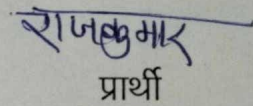 राजकुमार
प्रार्थी